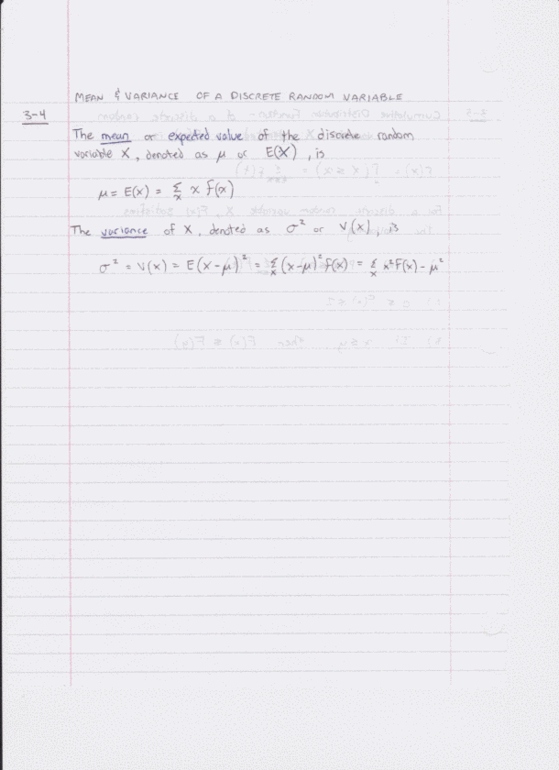 MEAN & VARIANCE OF A DISCRETE RANDOM VARIABLE
3-4
The mean or expected value of the discrete random
variable X, denoted as μ or E(X), is
μ = E(x) = Σx x f(x)
The variance of X, denoted as σ² or V(x), is
σ² = V(x) = E(x-μ)² = Σx (x-μ)² f(x) = Σx x² f(x) - μ²